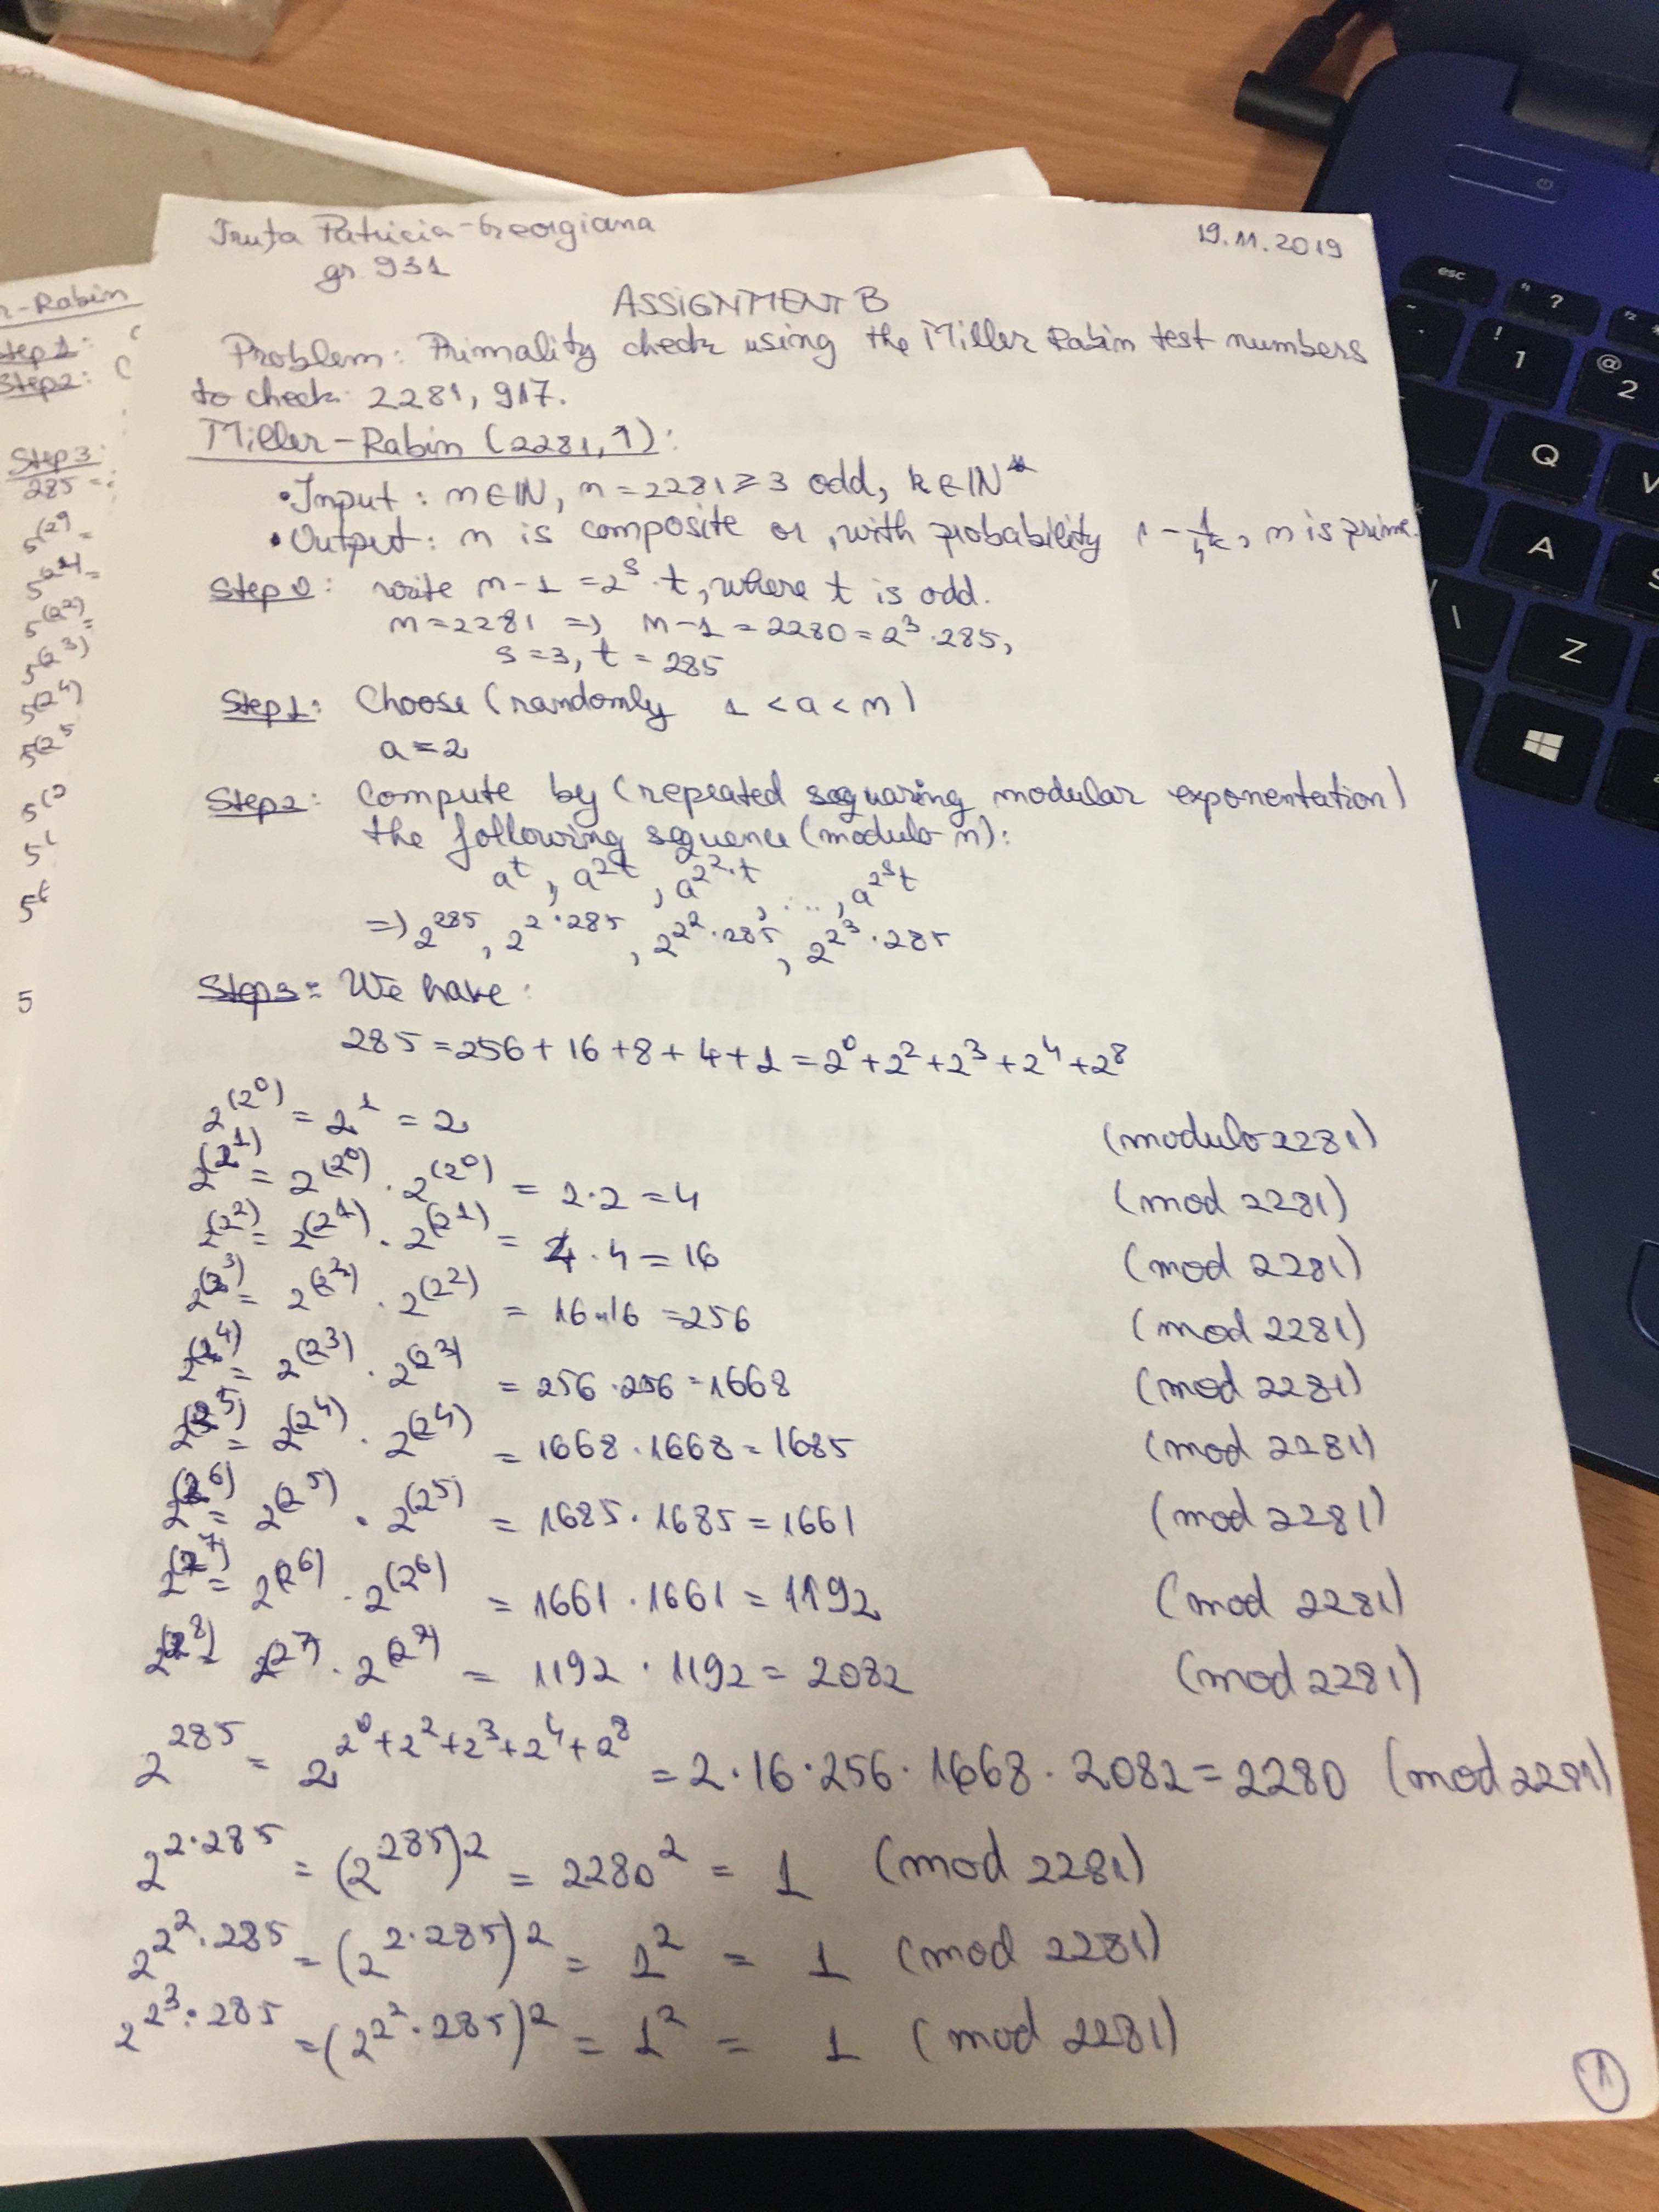 Truța Patricia-Georgiana
19.11.2019
gr. 931
ASSIGNMENT B
Problem: Primality check using the Miller Rabin test numbers
to check: 2281, 917.
Miller-Rabin (2281, 1):
• Input: n∈ℕ, n=2281≥3 odd, k∈ℕ*
• Output: n is composite or, with probability 1-1/4^k, n is prime.
Step 0: write n-1=2^s·t, where t is odd.
n=2281 => n-1=2280=2^3·285,
s=3, t=285
Step 1: Choose (randomly 1<a<n)
a=2
Step 2: Compute by (repeated squaring modular exponentation)
the following sequence (modulo n):
a^t, a^2t, a^2^2·t, ..., a^2^s t
=> 2^285, 2^2·285, 2^2^2·285, 2^2^3·285
Step 3: We have:
285=256+16+8+4+1=2^0+2^2+2^3+2^4+2^8
2^(2^0)=2^1=2 (modulo 2281)
2^(2^1)=2^(2^0)·2^(2^0)=2·2=4 (mod 2281)
2^(2^2)=2^(2^1)·2^(2^1)=4·4=16 (mod 2281)
2^(2^3)=2^(2^2)·2^(2^2)=16·16=256 (mod 2281)
2^(2^4)=2^(2^3)·2^(2^3)=256·256=1668 (mod 2281)
2^(2^5)=2^(2^4)·2^(2^4)=1668·1668=1685 (mod 2281)
2^(2^6)=2^(2^5)·2^(2^5)=1685·1685=1661 (mod 2281)
2^(2^7)=2^(2^6)·2^(2^6)=1661·1661=1192 (mod 2281)
2^(2^8)=2^(2^7)·2^(2^7)=1192·1192=2082 (mod 2281)
2^285=2^2^0+2^2+2^3+2^4+2^8=2·16·256·1668·2082=2280 (mod 2281)
2^2·285=(2^285)^2=2280^2=1 (mod 2281)
2^2^2·285=(2^2·285)^2=1^2=1 (mod 2281)
2^2^3·285=(2^2^2·285)^2=1^2=1 (mod 2281)
1
-Rabin
Step 1:
Step 2:
Step 3:
285=
5^(2^2)=
5^(2^3)
5^(2^4)
5^(2^5
5
esc
?
!
1
@
2
Q
A
Z